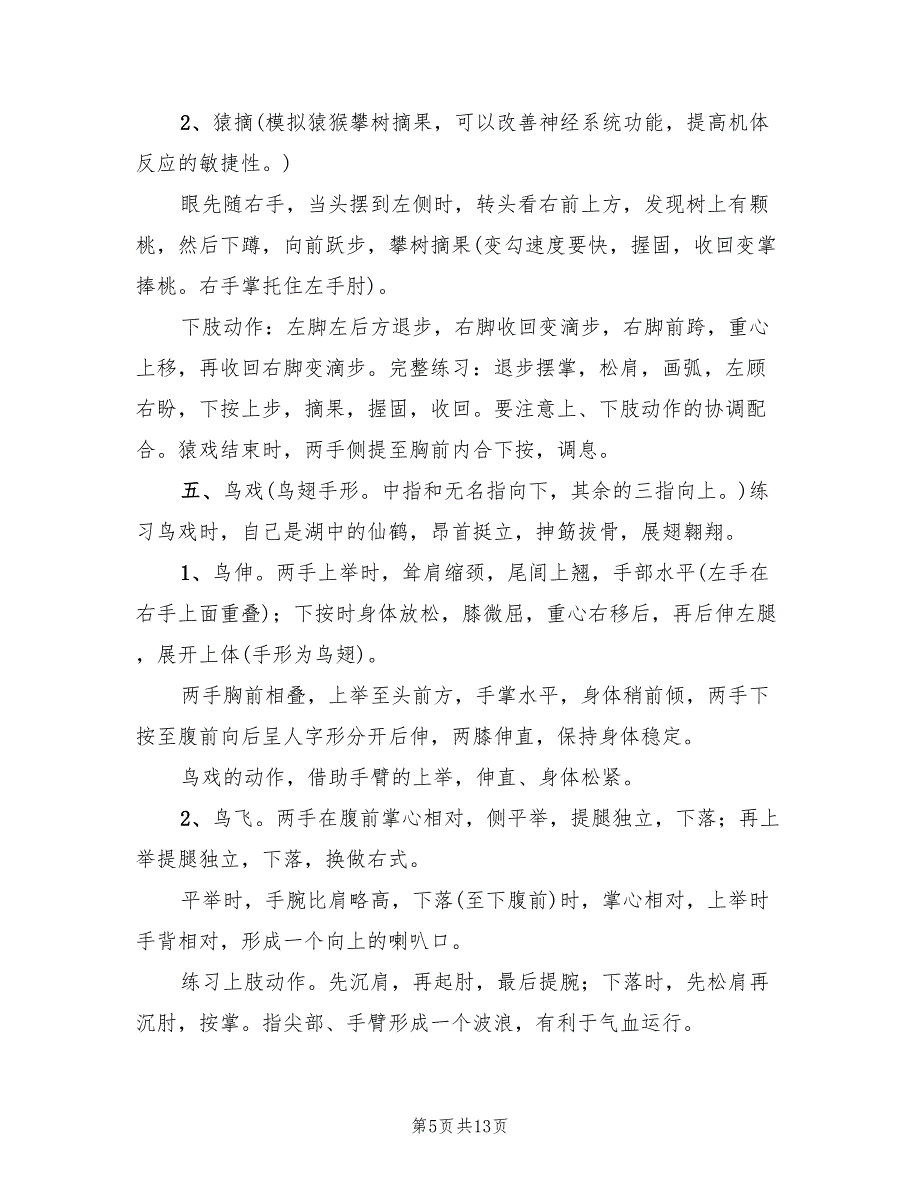 2、猿摘(模拟猿猴攀树摘果，可以改善神经系统功能，提高机体
反应的敏捷性。)
眼先随右手，当头摆到左侧时，转头看右前上方，发现树上有颗
桃，然后下蹲，向前跃步，攀树摘果(变勾速度要快，握固，收回变掌
捧桃。右手掌托住左手肘)。
下肢动作：左脚左后方退步，右脚收回变滴步，右脚前跨，重心
上移，再收回右脚变滴步。完整练习：退步摆掌，松肩，画弧，左顾
右盼，下按上步，摘果，握固，收回。要注意上、下肢动作的协调配
合。猿戏结束时，两手侧提至胸前内合下按，调息。
五、鸟戏(鸟翅手形。中指和无名指向下，其余的三指向上。)练
习鸟戏时，自己是湖中的仙鹤，昂首挺立，抻筋拔骨，展翅翱翔。
1、鸟伸。两手上举时，耸肩缩颈，尾闾上翘，手部水平(左手在
右手上面重叠)；下按时身体放松，膝微屈，重心右移后，再后伸左腿
，展开上体(手形为鸟翅)。
两手胸前相叠，上举至头前方，手掌水平，身体稍前倾，两手下
按至腹前向后呈人字形分开后伸，两膝伸直，保持身体稳定。
鸟戏的动作，借助手臂的上举，伸直、身体松紧。
2、鸟飞。两手在腹前掌心相对，侧平举，提腿独立，下落；再上
举提腿独立，下落，换做右式。
平举时，手腕比肩略高，下落(至下腹前)时，掌心相对，上举时
手背相对，形成一个向上的喇叭口。
练习上肢动作。先沉肩，再起肘，最后提腕；下落时，先松肩再
沉肘，按掌。指尖部、手臂形成一个波浪，有利于气血运行。
第5页共13页